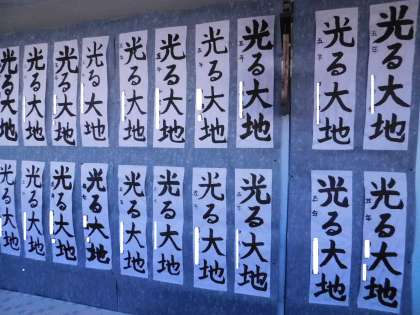 光る大地
光る大地
光る大地
光る大地
光る大地
光る大地
光る大地
光る大地
光る大地
光る大地
光る大地
光る大地
光る大地
光る大地
光る大地
光る大地
光る大地
光る大地
光る大地
光る大地